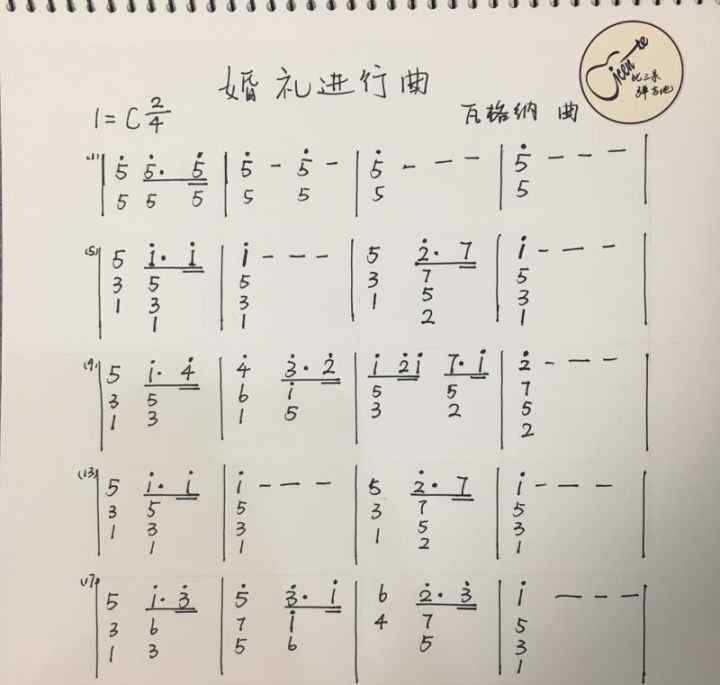 婚礼进行曲
1=C 2/4
瓦格纳 曲
(1) | 5̇ 5̇· 5̇ | 5̇ - 5̇ - | 5̇ - - - | 5̇ - - - |
5 5 5 5 5 5 5
(5) | 5 1̇· 1̇ | 1̇ - - - | 5 2̇· 7 | 1̇ - - - |
3 5 5 3 7 5
1 3 3 1 5 3
1 1 2 1
(9) | 5 1̇· 4̇ | 4̇ 3̇· 2̇ | 1̇ 2̇1̇ 7· 1̇ | 2̇ - - - |
3 5 6 1̇ 5 5 7
1 3 1 5 3 2 5
2
(13) | 5 1̇· 1̇ | 1̇ - - - | 5 2̇· 7 | 1̇ - - - |
3 5 5 3 7 5
1 3 3 1 5 3
1 1 2 1
(17) | 5 1̇· 3̇ | 5̇ 3̇· 1̇ | 6 2̇· 3̇ | 1̇ - - - |
3 6 7 1̇ 4 7 5
1 3 5 6 5 3
1